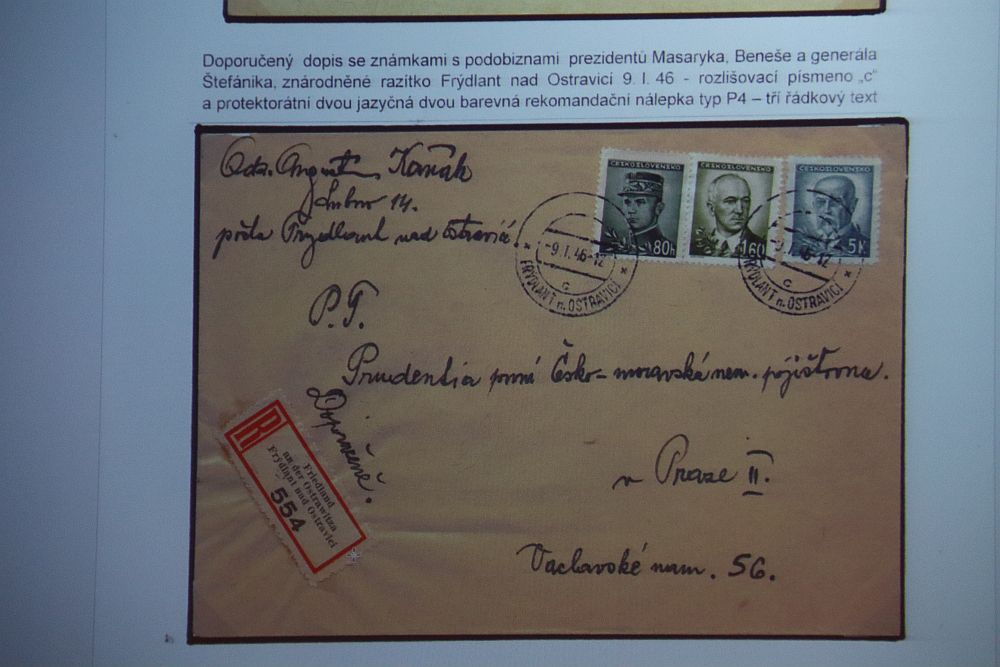 Doporučený dopis se známkami s podobiznami prezidentů Masaryka, Beneše a generála
Štefánika, znárodněné razítko Frýdlant nad Ostravicí 9. I. 46 - rozlišovací písmeno „c“
a protektorátní dvou jazyčná dvou barevná rekomandační nálepka typ P4 – tří řádkový text
Odes. Augustin Kaňák
Lubno 14.
pošta Frydlant nad Ostravicí
ČESKOSLOVENSKO
80h
ČESKOSLOVENSKO
1.60
ČESKOSLOVENSKO
5K
-9.I.46-12
c
FRÝDLANT n. OSTRAVICÍ
9.I.46-12
c
FRÝDLANT n. OSTRAVICÍ
P.T.
Prudentia první Česko-moravská nem. pojišťovna.
Doporučeně.
v Praze II.
Vaclavské nam. 56.
R
Friedland
an der Ostrawitza
Frýdlant nad Ostravicí
554